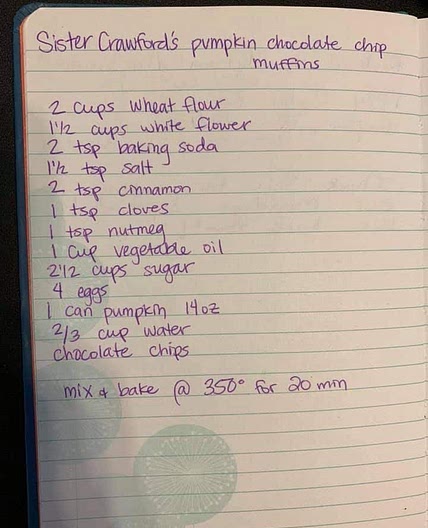 Sister Crawford's pumpkin chocolate chip
muffins
2 cups wheat flour
1 1/2 cups white flower
2 tsp baking soda
1 1/2 tsp salt
2 tsp cinnamon
1 tsp cloves
1 tsp nutmeg
1 cup vegetable oil
2 1/2 cups sugar
4 eggs
1 can pumpkin 14oz
2/3 cup water
chocolate chips
mix & bake @ 350° for 20 min